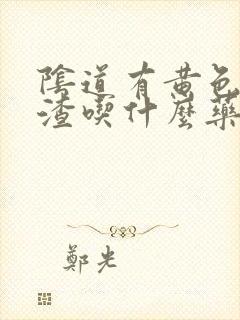 陰道有黄色
渣喫什麼藥
鄭光